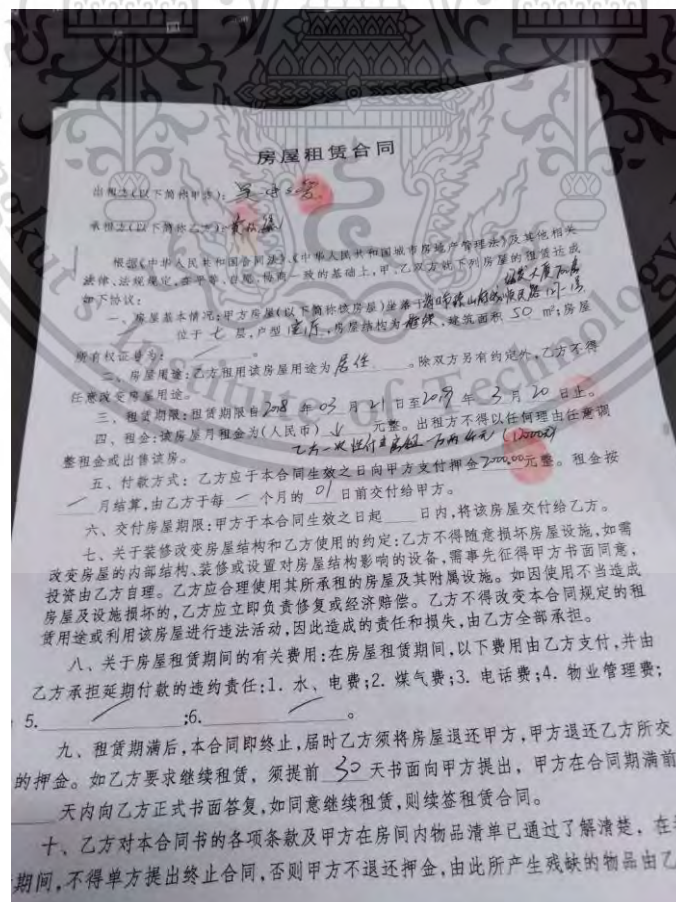 房屋租赁合同
出租方(以下简称甲方):
承租方(以下简称乙方):
根据《中华人民共和国合同法》、《中华人民共和国城市房地产管理法》及其他相关
法律、法规规定,在平等、自愿、协商一致的基础上,甲、乙双方就下列房屋的租赁达成
如下协议:
一、房屋基本情况:甲方房屋(以下简称该房屋)坐落于
位于 七 层,户型 ,房屋结构为 ,建筑面积 50 m²;房屋
所有权证号为:
二、房屋用途:乙方租用该房屋用途为 居住 。除双方另有约定外,乙方不得
任意改变房屋用途。
三、租赁期限:租赁期限自 2018 年 03 月 21 日至 2019 年 3 月 20 日止。
四、租金:该房屋月租金为(人民币) 元整。出租方不得以任何理由任意调
整租金或出售该房。 乙方一次性付
五、付款方式:乙方应于本合同生效之日向甲方支付押金 2000.00 元整。租金按
一 月结算,由乙方于每 一 个月的 01 日前交付给甲方。
六、交付房屋期限:甲方于本合同生效之日起 日内,将该房屋交付给乙方。
七、关于装修改变房屋结构和乙方使用的约定:乙方不得随意损坏房屋设施,如需
改变房屋的内部结构、装修或设置对房屋结构影响的设备,需事先征得甲方书面同意,
投资由乙方自理。乙方应合理使用其所承租的房屋及其附属设施。如因使用不当造成
房屋及设施损坏的,乙方应立即负责修复或经济赔偿。乙方不得改变本合同规定的租
赁用途或利用该房屋进行违法活动,因此造成的责任和损失,由乙方全部承担。
八、关于房屋租赁期间的有关费用:在房屋租赁期间,以下费用由乙方支付,并由
乙方承担延期付款的违约责任:1. 水、电费;2. 煤气费;3. 电话费;4. 物业管理费;
5. ;6. 。
九、租赁期满后,本合同即终止,届时乙方须将房屋退还甲方,甲方退还乙方所交
的押金。如乙方要求继续租赁,须提前 30 天书面向甲方提出,甲方在合同期满前
天内向乙方正式书面答复,如同意继续租赁,则续签租赁合同。
十、乙方对本合同书的各项条款及甲方在房间内物品清单已通过了解清楚,在
期间,不得单方提出终止合同,否则甲方不退还押金,由此所产生残缺的物品由乙
s Institute of Technolo